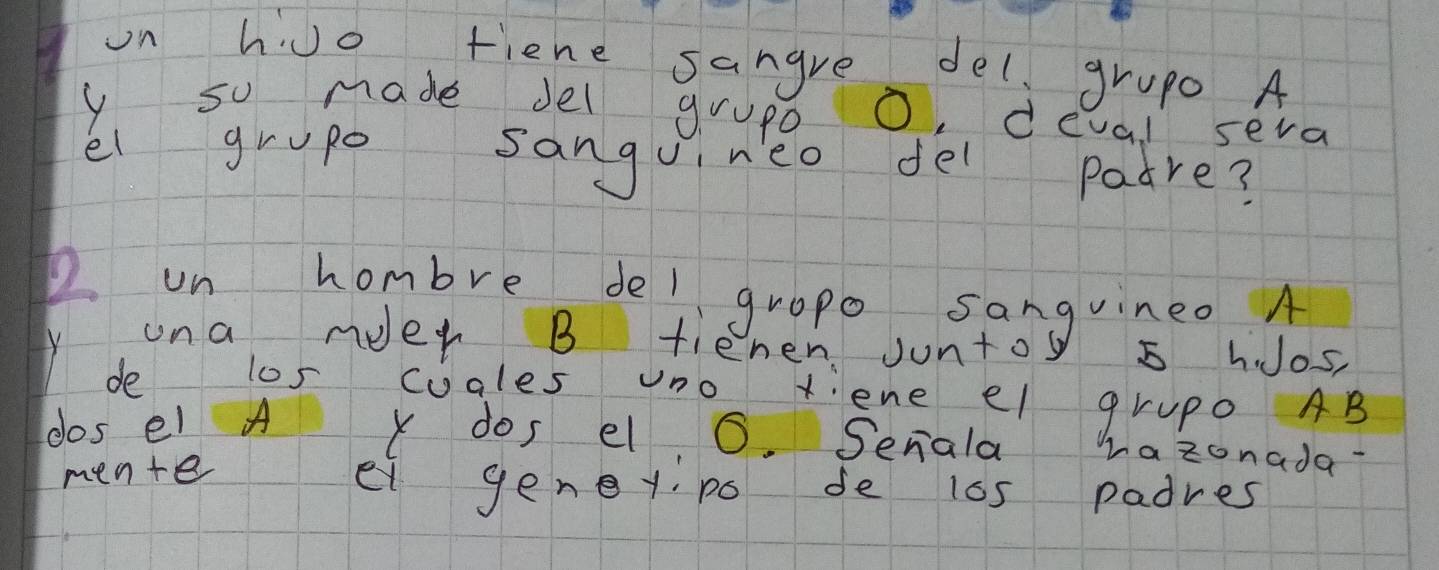 1 un hijo tiene sangre del grupo A
y su made del grupo O, d cual sera
el grupo sanguineo del padre?
2 un hombre del gropo sanguineo A
y una mujer B tienen juntos 5 hijos,
de los cuales uno tiene el grupo AB
dos el A y dos el O. Señala razonada-
mente el genotipo de los padres